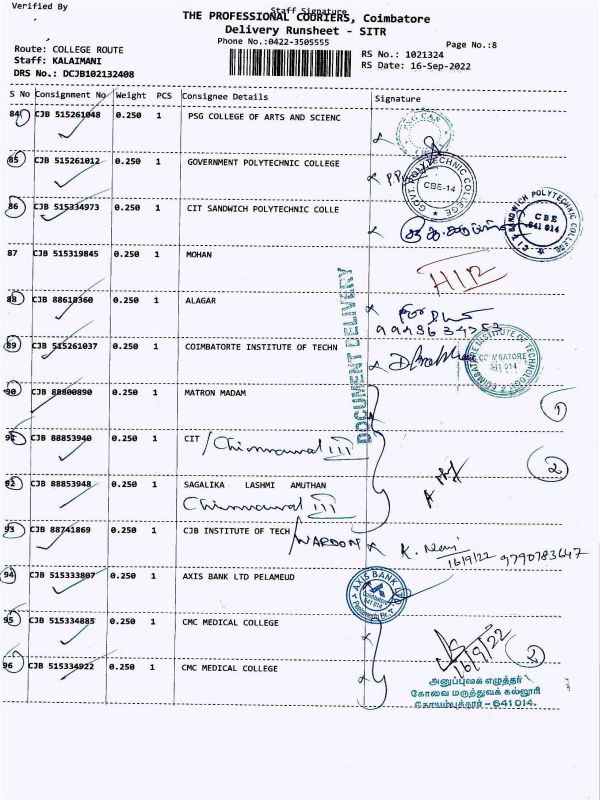 Verified By
Staff Signature
THE PROFESSIONAL COURIERS, Coimbatore
Delivery Runsheet - SITR
Phone No.:0422-3505555
Page No.:8
Route: COLLEGE ROUTE
Staff: KALAIMANI
DRS No.: DCJB102132408
RS No.: 1021324
RS Date: 16-Sep-2022
S No Consignment No Weight PCS Consignee Details Signature
84 CJB 515261048 0.250 1 PSG COLLEGE OF ARTS AND SCIENC
85 CJB 515261012 0.250 1 GOVERNMENT POLYTECHNIC COLLEGE
GOVT. POLYTECHNIC COLLEGE
CBE-14
86 CJB 515334973 0.250 1 CIT SANDWICH POLYTECHNIC COLLE
C I T SANDWICH POLYTECHNIC COLLEGE
CBE
641 014
87 CJB 515319845 0.250 1 MOHAN
88 CJB 88618360 0.250 1 ALAGAR
DOCUMENT DELIVERY
89 CJB 515261037 0.250 1 COIMBATORTE INSTITUTE OF TECHN
COIMBATORE INSTITUTE OF TECHNOLOGY
COIMBATORE
641 014
90 CJB 88800890 0.250 1 MATRON MADAM
1
91 CJB 88853940 0.250 1 CIT
2
92 CJB 88853948 0.250 1 SAGALIKA LASHMI AMUTHAN
93 CJB 88741869 0.250 1 CJB INSTITUTE OF TECH / WARDON
16/9/22 9790783647
94 CJB 515333807 0.250 1 AXIS BANK LTD PELAMEUD
AXIS BANK LTD
95 CJB 515334885 0.250 1 CMC MEDICAL COLLEGE
16/9/22
2
96 CJB 515334922 0.250 1 CMC MEDICAL COLLEGE
அனுப்புகை எழுத்தர்
கோவை மருத்துவக் கல்லூரி
கோயம்புத்தூர் - 641 014.